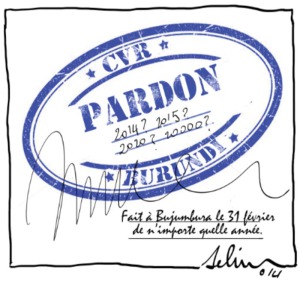 CVR
PARDON
2014? 2015?
2020? 20000?
BURUNDI
Fait à Bujumbura le 31 février
de n'importe quelle année.